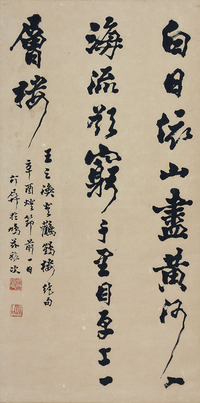 白日依山盡黃河入
海流欲窮千里目更上一
層樓
王之渙登鸛鵲樓絕句
辛酉燈節前一日
於旅次